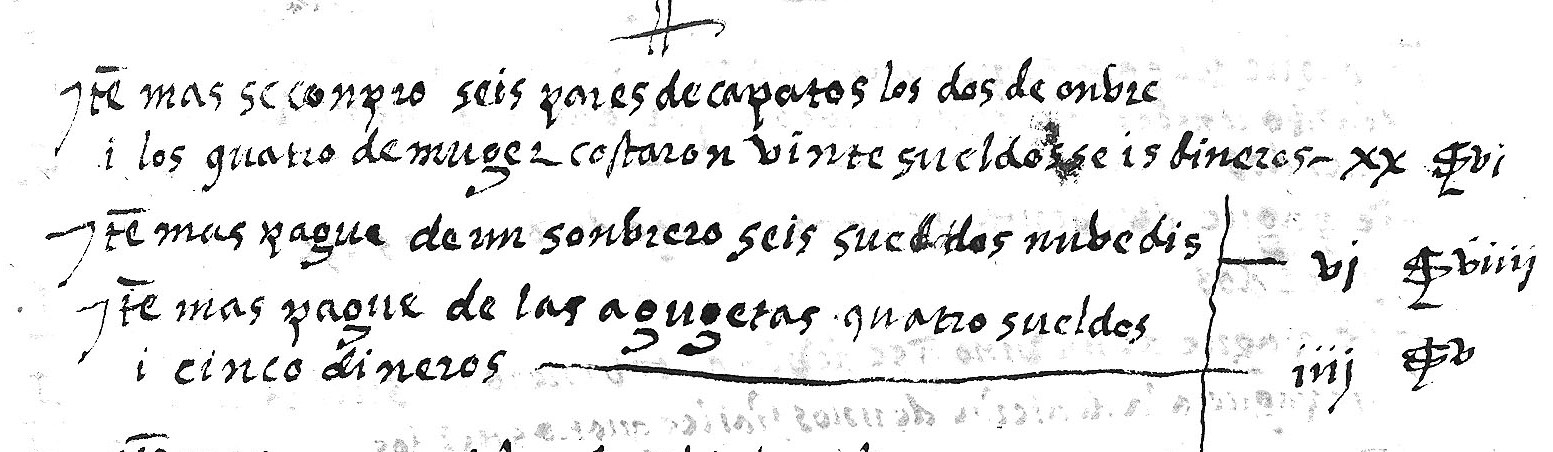 Itē mas se conpro seis pares de capatos los dos de onbre
i los quatro de muger costaron vinte sueldos seis dineros – xx s vi
Itē mas pague de un sonbrero seis sueldos nube dis — vi s viiij
Itē mas pague de las agugetas quatro sueldos
i cinco dineros — iiij s v